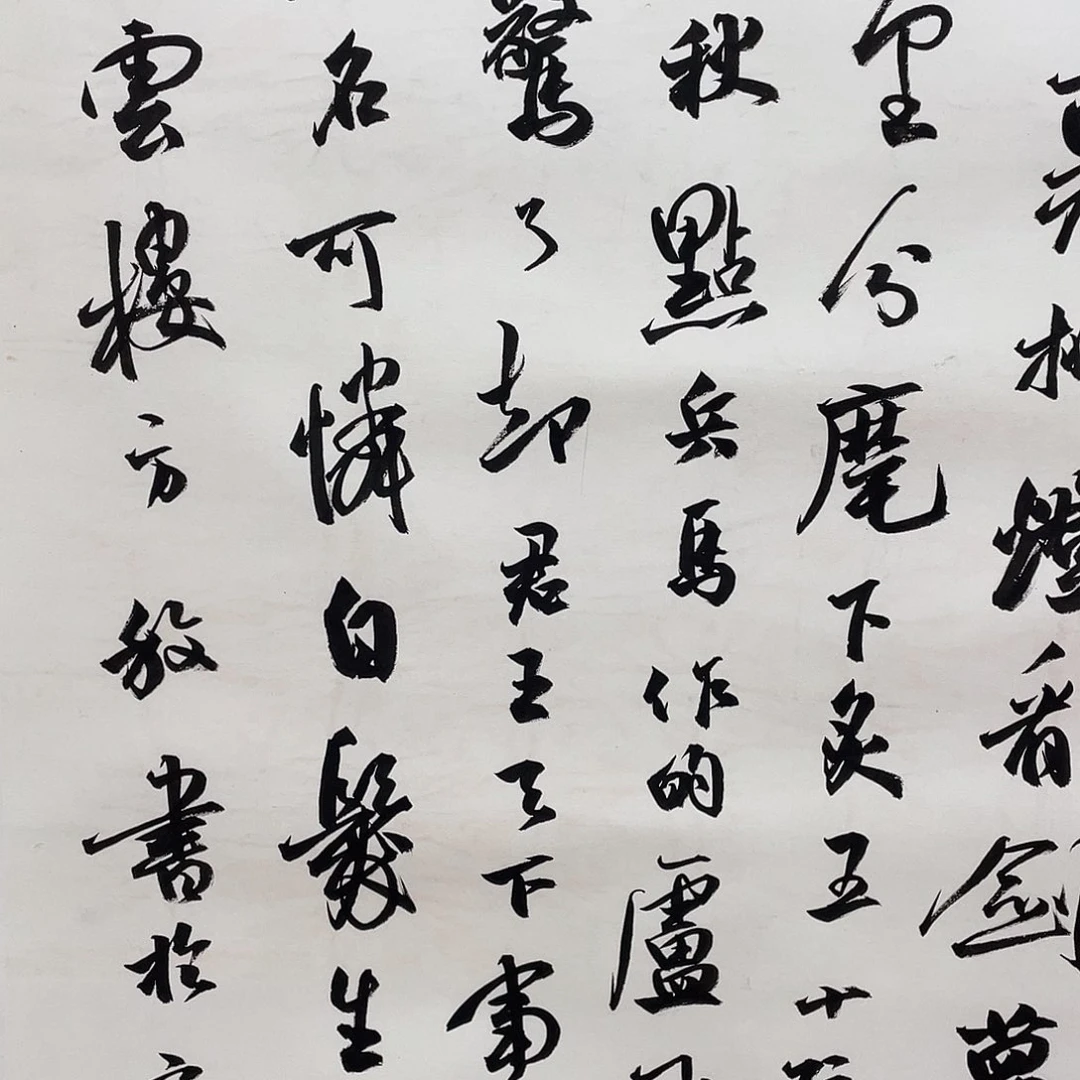 挑燈看劍夢
里分麾下炙五十
秋點兵馬作的盧
驚了卻君王天下事
名可憐白髮生
雲樓方放書於